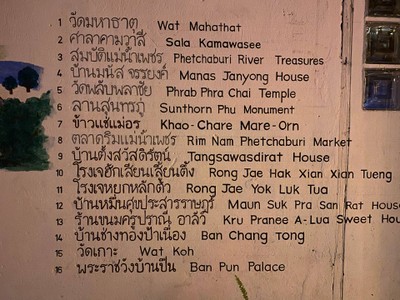 1 วัดมหาธาตุ Wat Mahathat
2 ศาลาคามวาสี Sala Kamawasee
3 สมบัติแม่น้ำเพชร Phetchaburi River Treasures
4 บ้านมนัส จรรยงค์ Manas Janyong House
5 วัดพลับพลาชัย Phrab Phra Chai Temple
6 ลานสุนทรภู่ Sunthorn Phu Monument
7 ข้าวแช่แม่อร Khao-Chare Mare-Orn
8 ตลาดริมแม่น้ำเพชร Rim Nam Phetchaburi Market
9 บ้านตั้งสวัสดิรัตน์ Tangsawasdirat House
10 โรงเจฮักเสียนเสียนติ้ง Rong Jae Hak Xian Xian Tueng
11 โรงเจหยกหลักตั๊ว Rong Jae Yok Luk Tua
12 บ้านหมื่นคุปประสารราษฎร์ Maun Suk Pra San Rat House
13 ร้านขนมครูปราณี อาลัว Kru Pranee A-Lua Sweet Hou
14 บ้านช่างทองป้าเนื่อง Ban Chang Tong
15 วัดเกาะ Wat Koh
16 พระราชวังบ้านปืน Ban Pun Palace